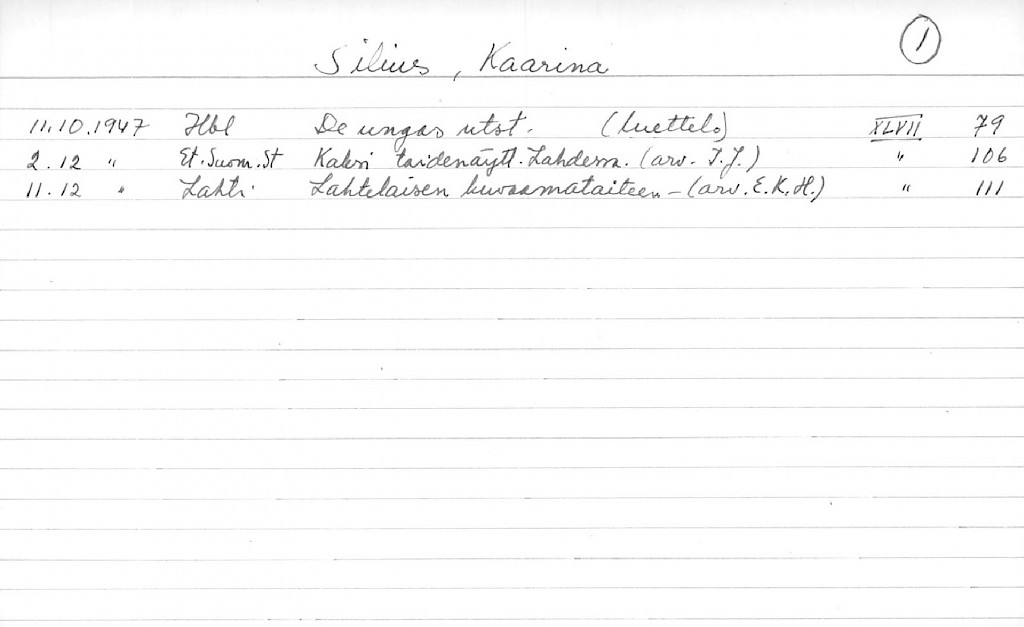 1
Silius, Kaarina
11.10.1947 Hbl De ungas utst. (luettelo) XLVII 79
2.12 " Et.Suom.St Kaksi taidenäytt. Lahdessa. (arv. I.J.) " 106
11.12 " Lahti Lahtelaisen kuvaamataiteen – (arv. E.K.H.) " 111